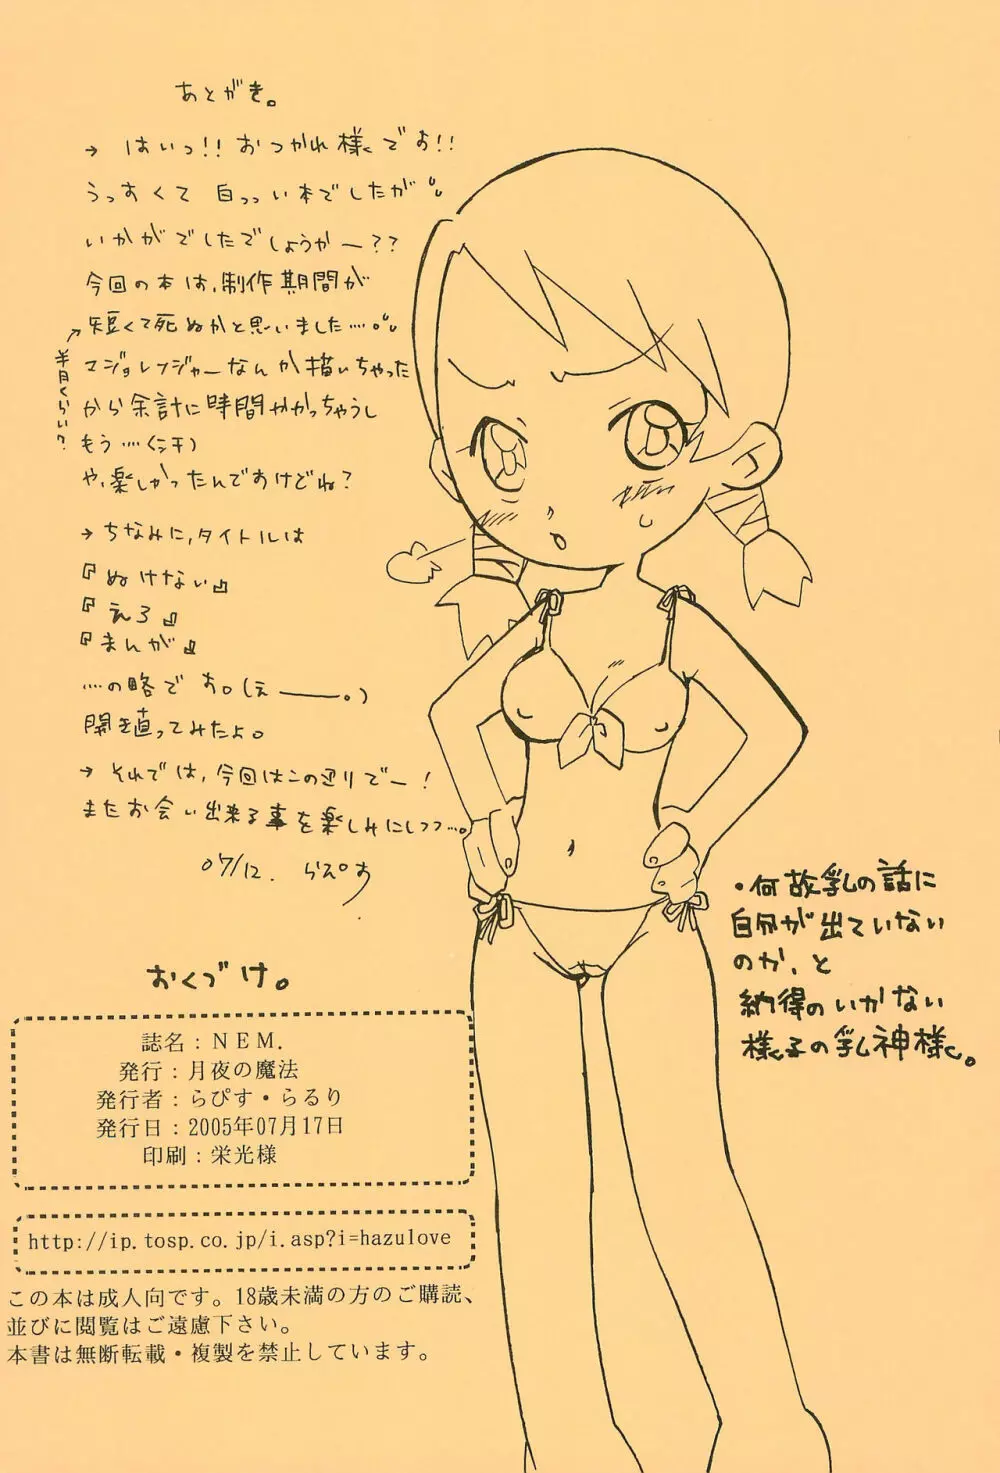 あとがき。
→ はいっ!! おつかれ様でお!!
うっすくて 白っっい本でしたが
いかがでしたでしょうかー??
今回の本は、制作期間が
短くて死ぬかと思いました…。
半月くらい?
マジョレンジャーなんか描いちゃった
から余計に時間かかっちゃうし
もう…
や、楽しかったんですけどね?
→ ちなみに、タイトルは
『ぬけない』
『えろ』
『まんが』
…の略です。(えー。)
開き直ってみたよ。
→ それでは、今回はこの辺りでー!
またお会い出来る事を楽しみにしつつ…。
07/12. らぴす
・何故乳の話に
自分が出ていない
のか、と
納得のいかない
様子の乳神様。
おくづけ。
誌名：ＮＥＭ.
発行：月夜の魔法
発行者：らぴす・らるり
発行日：2005年07月17日
印刷：栄光様
http://ip.tosp.co.jp/i.asp?i=hazulove
この本は成人向です。18歳未満の方のご購読、
並びに閲覧はご遠慮下さい。
本書は無断転載・複製を禁止しています。